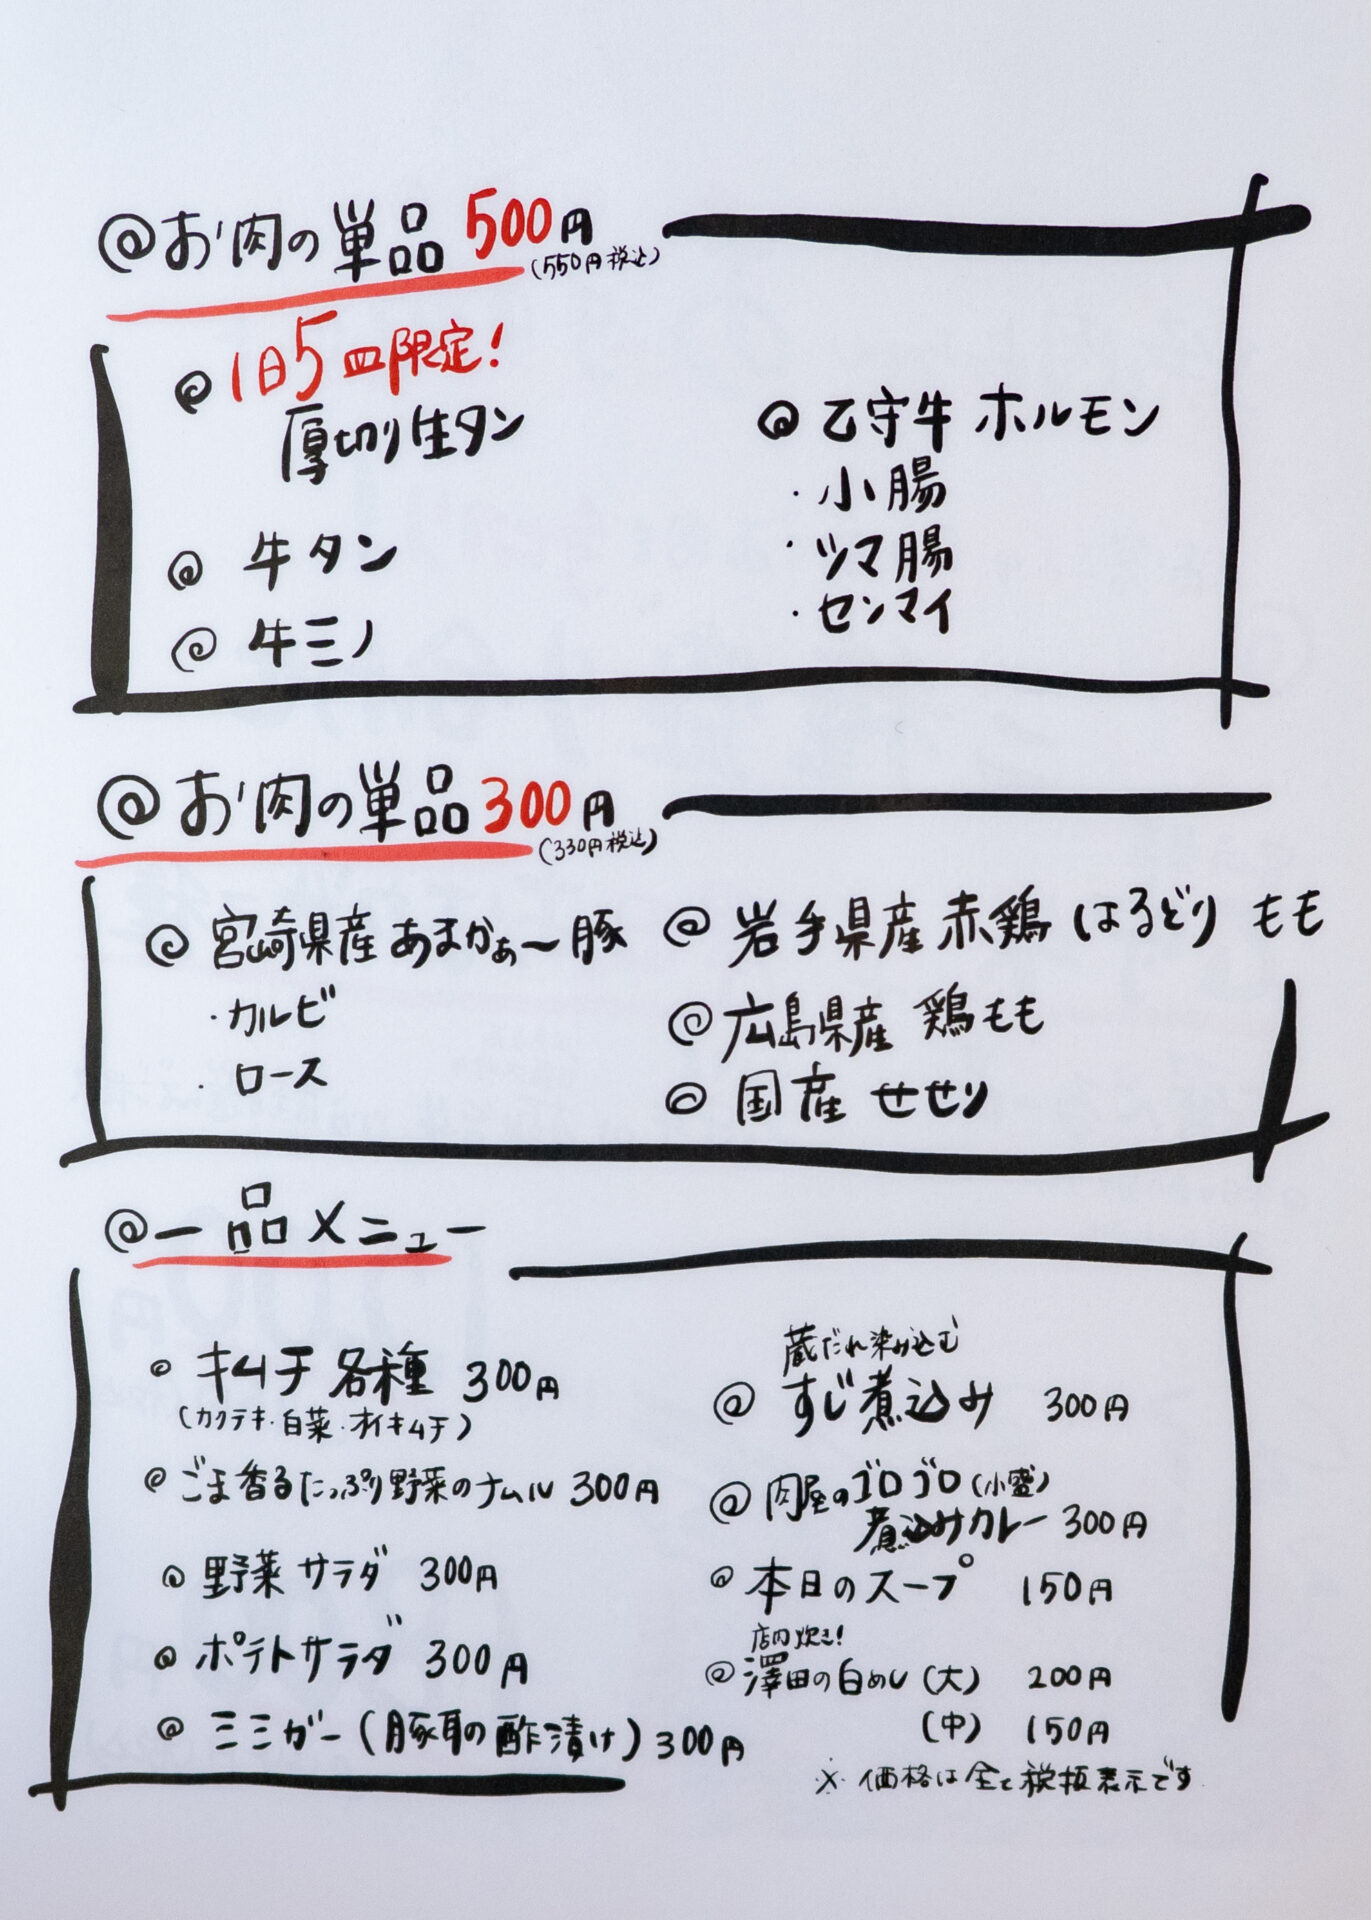 @お肉の単品 500円
(550円税込)
@ 1日5皿限定!
厚切り生タン
@ 牛タン
@ 牛ミノ
@ 乙守牛 ホルモン
・小腸
・ツマ腸
・センマイ
@お肉の単品 300円
(330円税込)
@ 宮崎県産 あまかぁ〜豚
・カルビ
・ロース
@ 岩手県産 赤鶏 はるどり もも
@ 広島県産 鶏もも
@ 国産 せせり
@一品メニュー
@ キムチ 各種 300円
(カクテキ・白菜・オイキムチ)
@ ごま香るたっぷり野菜のナムル 300円
@ 野菜サラダ 300円
@ ポテトサラダ 300円
@ ミミガー(豚耳の酢漬け) 300円
蔵だれ染み込む
@ すじ煮込み 300円
@ 肉屋のゴロゴロ(小盛)
煮込みカレー 300円
@ 本日のスープ 150円
店内炊き!
@ 澤田の白めし (大) 200円
(中) 150円
※ 価格は全て税抜表示です